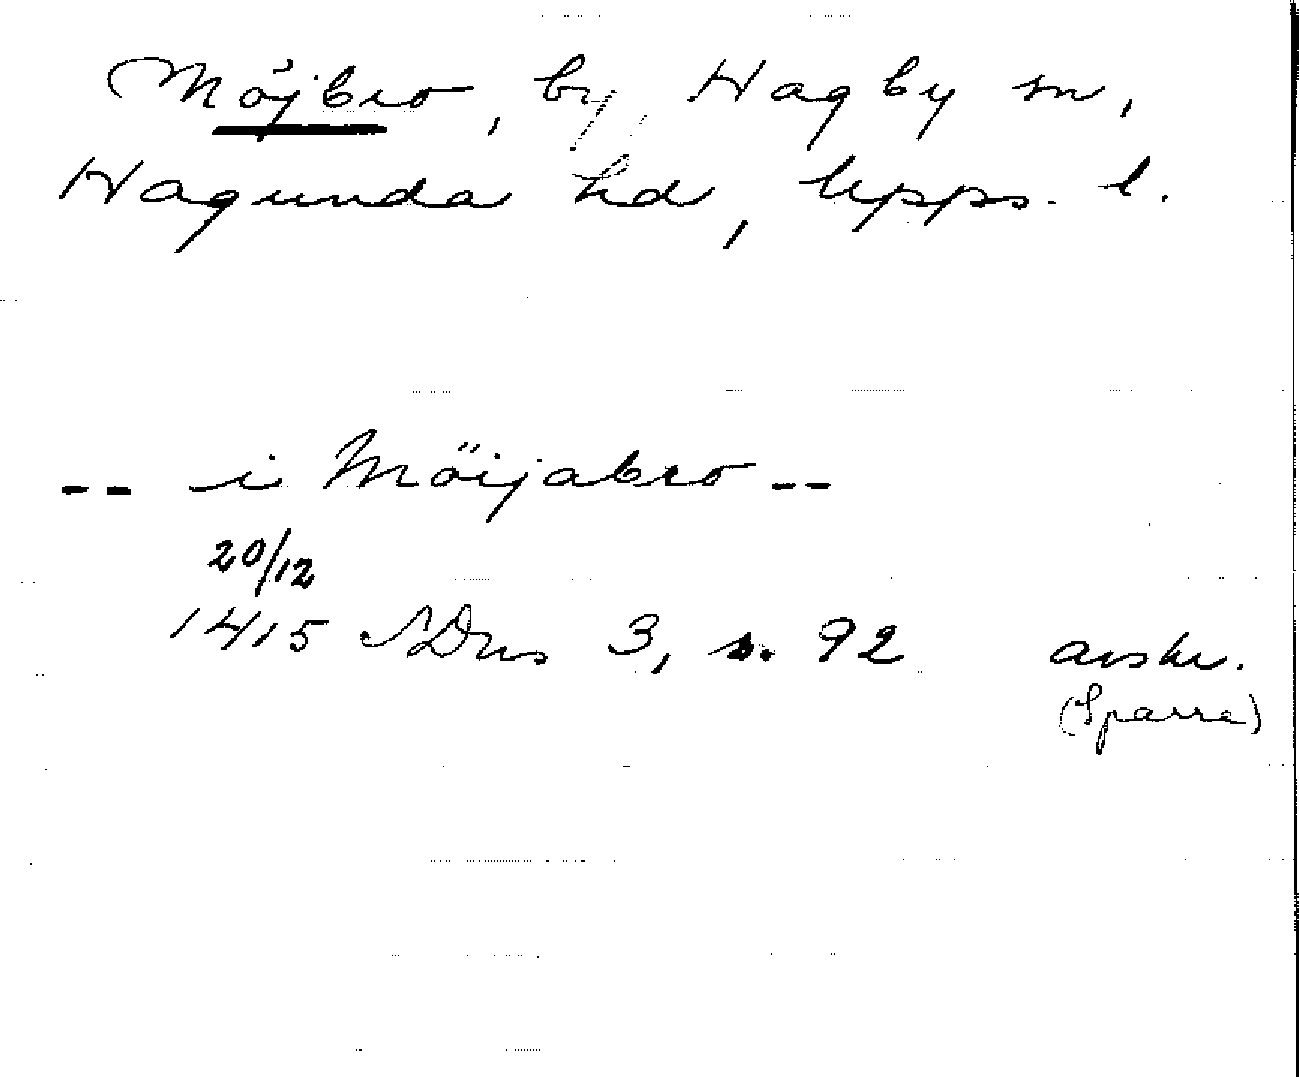 Möjbro, by, Hagby sn,
Hagunda hd, Upps. l.
-- i Möijabro --
20/12
1415 SDns 3, s. 92 avskr.
(Sparre)